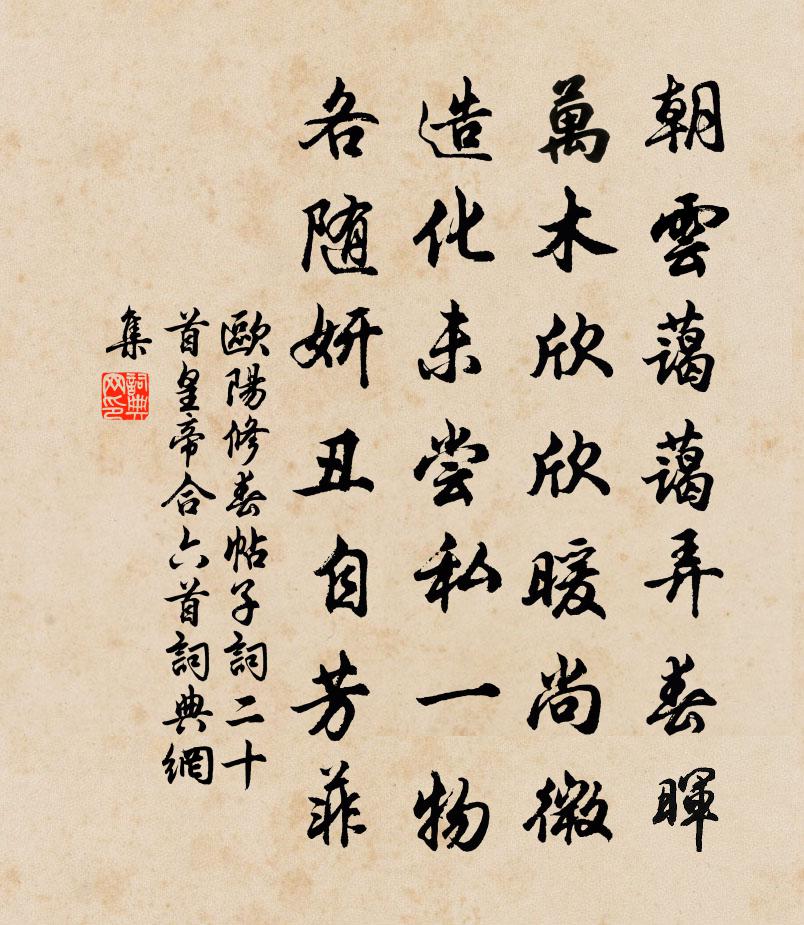 朝雲藹藹弄春暉
萬木欣欣暖尚微
造化未尝私一物
各随妍丑自芳菲
歐陽修春帖子詞二十
首皇帝合六首詞典網
集
詞典
网印